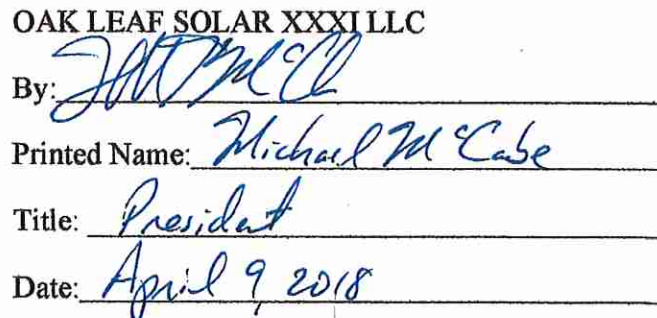 OAK LEAF SOLAR XXXI LLC
By:
Printed Name: Michael McCabe
Title: President
Date: April 9, 2018